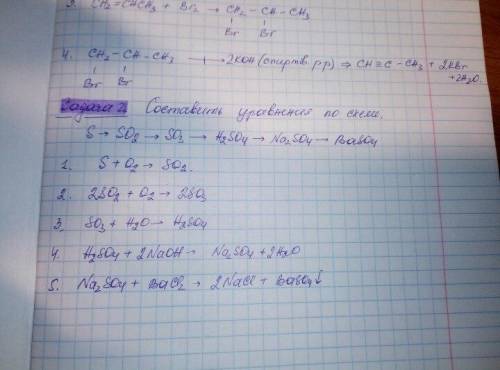 3. CH₂=CHCH₃ + Br₂ → CH₂-CH-CH₃
Br Br
4. CH₂-CH-CH₃ + 2KOH (спиртв. рр) ⇒ CH≡C-CH₃ + 2KBr
Br Br +2H₂O.
Задача 2. Составить уравнения по схеме.
S → SO₂ → SO₃ → H₂SO₄ → Na₂SO₄ → BaSO₄
1. S + O₂ → SO₂.
2. 2SO₂ + O₂ → 2SO₃
3. SO₃ + H₂O → H₂SO₄
4. H₂SO₄ + 2NaOH → Na₂SO₄ + 2H₂O
5. Na₂SO₄ + BaCl₂ → 2NaCl + BaSO₄↓